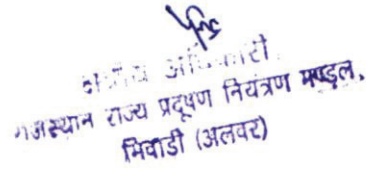 क्षेत्रीय अधिकारी
राजस्थान राज्य प्रदूषण नियंत्रण मण्डल,
भिवाडी (अलवर)